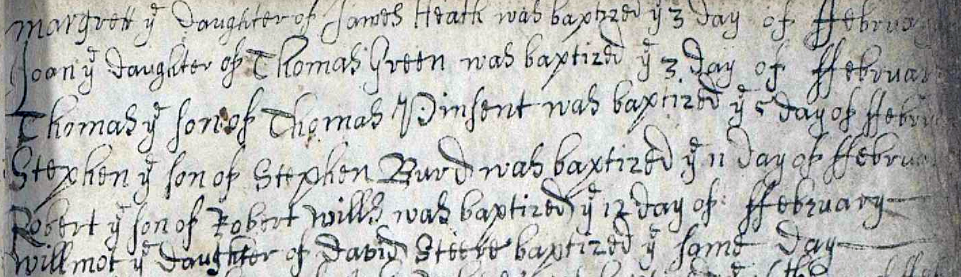 Margrett yᵉ daughter of James Heath was baptized yᵉ 3 day of ffebrua
Joan yᵉ daughter of Thomas Green was baptized yᵉ 3 day of ffebruar
Thomas yᵉ son of Thomas Vinsent was baptized yᵉ 5 day of ffebru
Stephen yᵉ son of Stephen Burd was baptized yᵉ 11 day of ffebrua
Robert yᵉ son of Robert Wills was baptized yᵉ 12 day of ffebruary
Willmot yᵉ daughter of David Steere baptized yᵉ same day